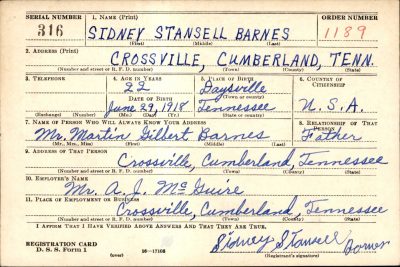 SERIAL NUMBER 1. NAME (Print) ORDER NUMBER
316 SIDNEY STANSELL BARNES 1189
(First) (Middle) (Last)
2. ADDRESS (Print)
CROSSVILLE, CUMBERLAND, TENN.
(Number and street or R. F. D. number) (Town) (County) (State)
3. TELEPHONE 4. AGE IN YEARS 5. PLACE OF BIRTH 6. COUNTRY OF CITIZENSHIP
22 Daysville
DATE OF BIRTH (Town or county)
June 29, 1918 Tennessee U. S. A.
(Exchange) (Number) (Mo.) (Day) (Yr.) (State or country)
7. NAME OF PERSON WHO WILL ALWAYS KNOW YOUR ADDRESS 8. RELATIONSHIP OF THAT PERSON
Mr. Martin Gilbert Barnes Father
(Mr., Mrs., Miss) (First) (Middle) (Last)
9. ADDRESS OF THAT PERSON
Crossville, Cumberland, Tennessee
(Number and street or R. F. D. number) (Town) (County) (State)
10. EMPLOYER'S NAME
Mr. A. J. McGuire
11. PLACE OF EMPLOYMENT OR BUSINESS
Crossville, Cumberland, Tennessee
(Number and street or R. F. D. number) (Town) (County) (State)
I AFFIRM THAT I HAVE VERIFIED ABOVE ANSWERS AND THAT THEY ARE TRUE.
Sidney Stansell Barnes
REGISTRATION CARD
D. S. S. Form 1 (over) 16—17105 (Registrant's signature)